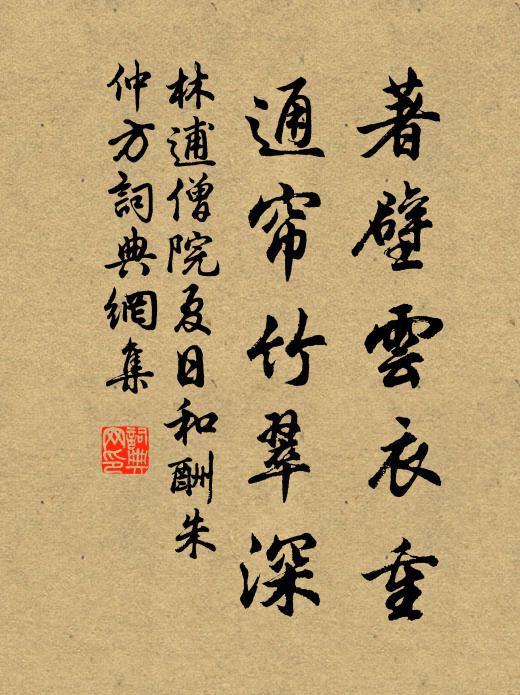 著壁雲衣重
通帘竹翠深
林逋僧院夏日和酬朱
仲方詞典網集
詞典網印